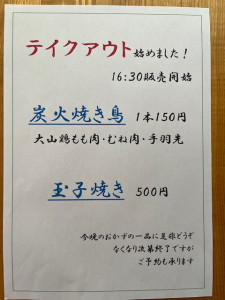 テイクアウト始めました!
16:30販売開始
炭火焼き鳥 1本150円
大山鶏もも肉・むね肉・手羽先
玉子焼き 500円
今晩のおかずの一品に是非どうぞ
なくなり次第終了ですが
ご予約も承ります